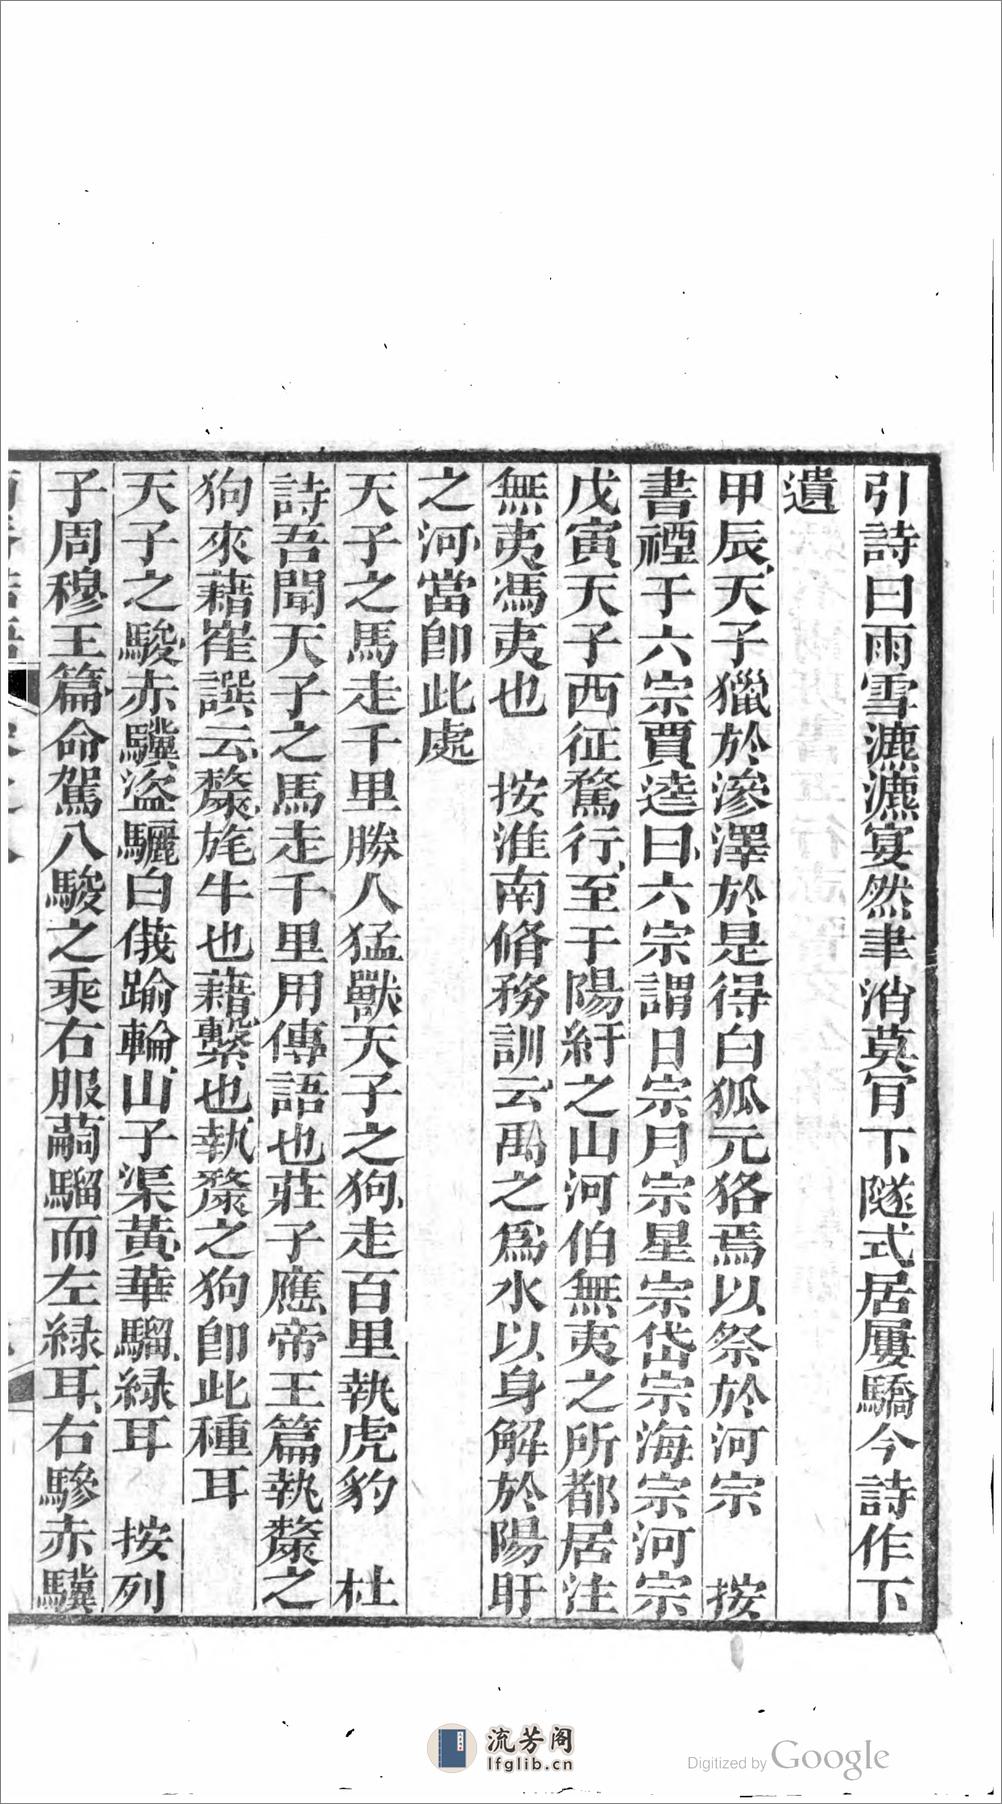 引詩曰雨雪瀌瀌宴然聿消莫肎下隧式居屢驕今詩作下
遺
甲辰天子獵於滲澤於是得白狐元狢焉以祭於河宗　按
書禋于六宗賈逵曰六宗謂日宗月宗星宗岱宗海宗河宗
戊寅天子西征騖行至于陽紆之山河伯無夷之所都居注
無夷馮夷也　按淮南脩務訓云禹之爲水以身解於陽盱
之河當卽此處
天子之馬走千里勝人猛獸天子之狗走百里執虎豹　杜
詩吾聞天子之馬走千里用傳語也莊子應帝王篇執斄之
狗來藉崔譔云斄旄牛也藉繫也執斄之狗卽此種耳
天子之駿赤驥盜驪白俄踰輪山子渠黃華騮綠耳　按列
子周穆王篇命駕八駿之乘右服䮷騮而左綠耳右驂赤驥
流芳阁
lfglib.cn
Digitized by Google